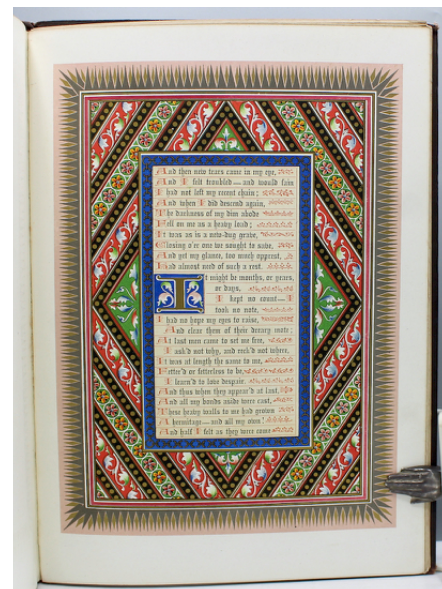 And then new tears came in my eye,
And I felt troubled—and would fain
I had not left my recent chain;
And when I did descend again,
The darkness of my dim abode
Fell on me as a heavy load;
It was as is a new-dug grave,
Closing o'er one we sought to save,
And yet my glance, too much opprest,
Had almost need of such a rest.
It might be months, or years,
or days,
I kept no count—I
took no note,
I had no hope my eyes to raise,
And clear them of their dreary mote;
At last men came to set me free,
I ask'd not why, and reck'd not where,
It was at length the same to me,
Fetter'd or fetterless to be,
I learn'd to love despair.
And thus when they appear'd at last,
And all my bonds aside were cast,
These heavy walls to me had grown
A hermitage—and all my own!
And half I felt as they were come